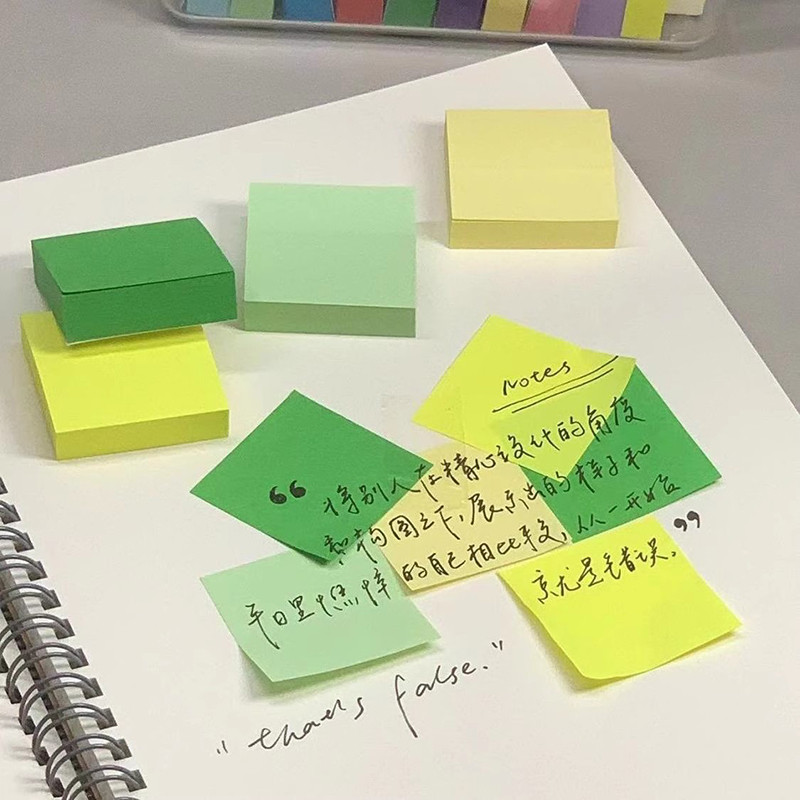 Notes
“将别人在精心设计的角度
和构图之下，展示出的样子和
平日里憔悴的自己相比较，从一开始
就是错误。”
"thats false."